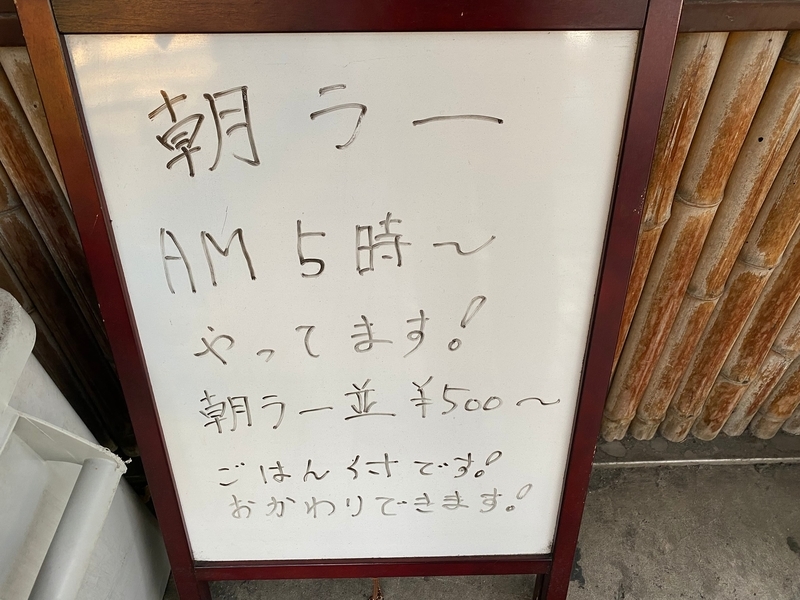 朝ラー
AM 5時〜
やってます!
朝ラー並 ¥500〜
ごはん付です!
おかわりできます!